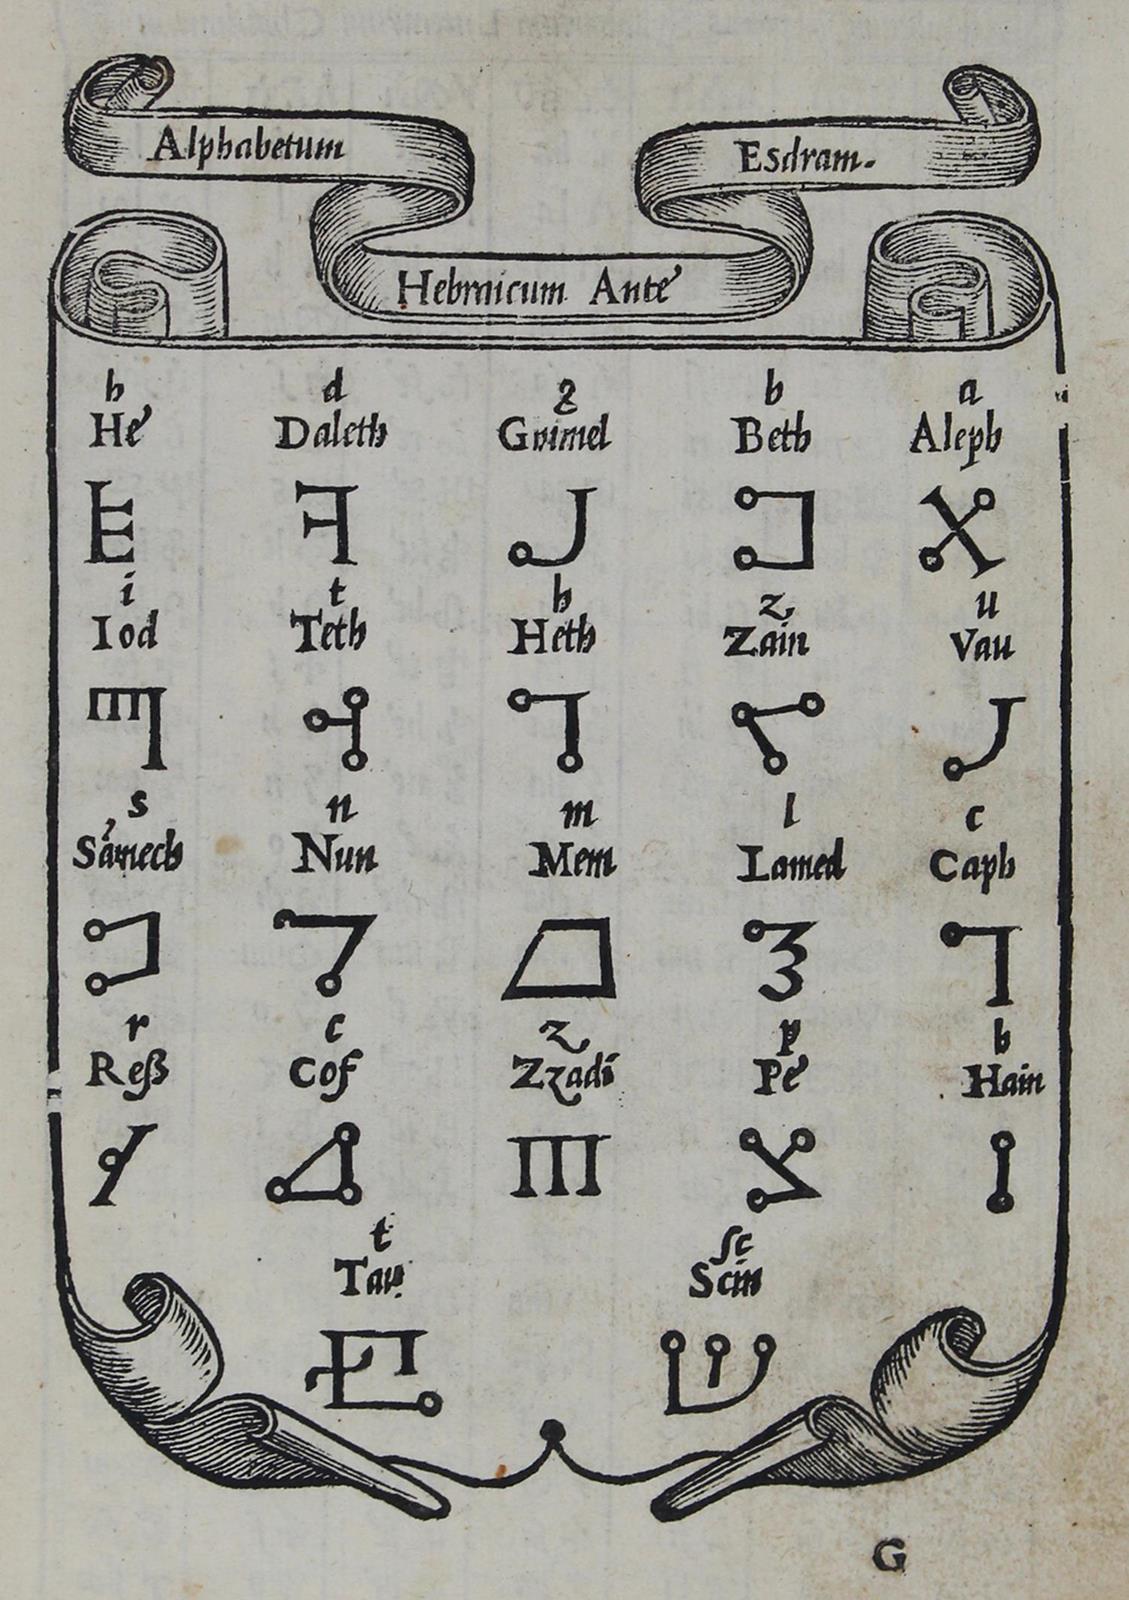 Alphabetum
Hebraicum Ante
Esdram.
h d g b a
He Daleth Gvimel Beth Aleph
i t h z u
Iod Teth Heth Zain Vau
s n m l c
Samech Nun Mem Lamed Caph
r c z p h
Reß Cof Zzadi Pe Hain
t sc
Tau Scin
G